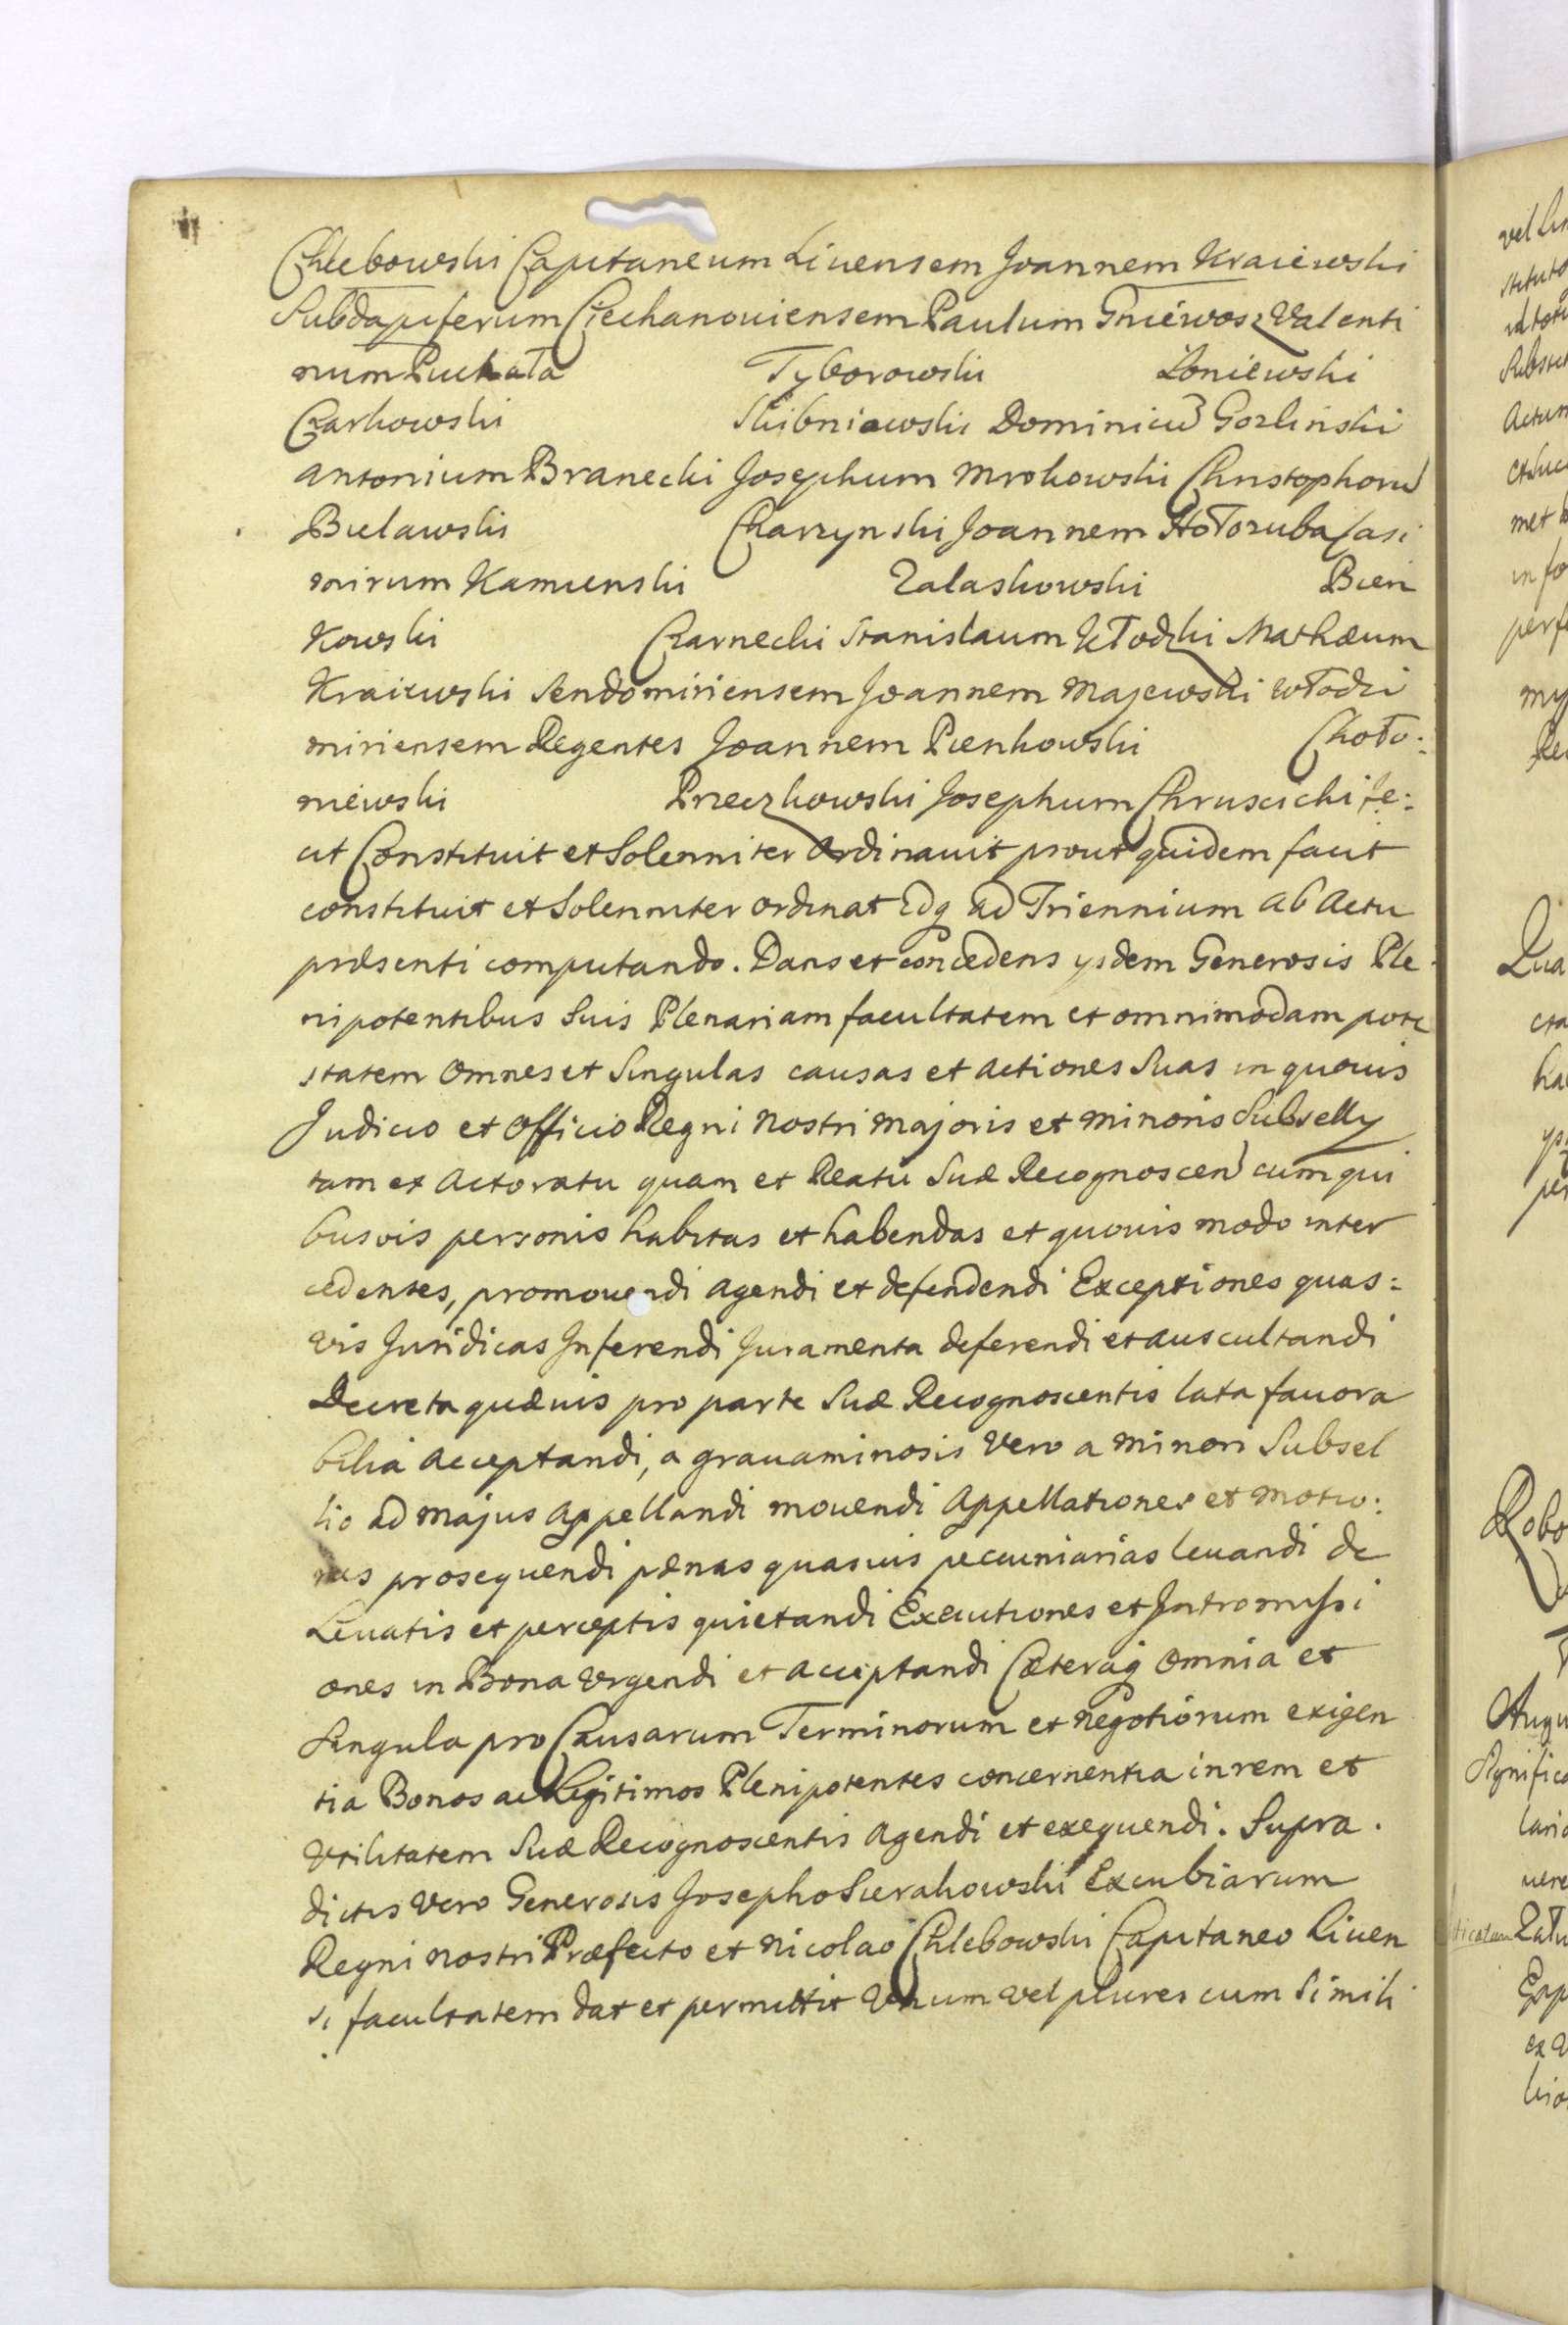 Chlebowski Capitaneum Livensem Joannem Kraiewski
Subdapiferum Ciechanoviensem Paulum Gniewosz Valenti
num Puchała Tyborowski Łoniewski
Czarkowski Skibniewski Dominicū Gozlinski
Antonium Branecki Josephum Mrokowski Christophorū
Bielawski Charzynski Joannem Hołozuba Casi
mirum Kamienski Zalaskowski Bien
kowski Czarnecki Stanislaum Kłodzki Mathæum
Kraiewski Sendomiriensem Joannem Majewski Włodzi
miriensem Regentes Joannem Pienkowski Choło:
niewski Przeczkowski Josephum Chruscicki fe:
cit Constituit et Solenniter Ordinavit prout quidem facit
constituit et Solenniter ordinat Idq ad Triennium ab Actu
præsenti computando. Dans et concedens ysdem Generosis Ple
nipotentibus Suis Plenariam facultatem et omnimodam pote
statem Omnes et Singulas causas et actiones Suas in quovis
Judicio et Officio Regni Nostri Majoris et Minoris Subselly
tam ex Actoratu quam et Reatu Suæ Recognoscen cum qui
busvis personis habitas et habendas et quovis modo inter
cedentes, promovendi agendi et defendendi Exceptiones quas:
vis Juridicas Inferendi Juramenta deferendi et auscultandi
Decreta quævis pro parte Suæ Recognoscentis lata favora
bilia acceptandi, a gravaminosis Vero a Minori Subsel
lio ad Majus Appellandi movendi Appellationes et Motio:
nes prosequendi pænas quasvis pecuniarias levandi de
Levatis et perceptis quietandi Executiones et Intromissi
ones in Bona Urgendi et acceptandi Cæteraq omnia et
Singula pro Causarum Terminorum et Negotiorum exigen
tia Bonos ac Legitimos Plenipotentes concernentia in rem et
Utilitatem Suæ Recognoscentis Agendi et exequendi. Supra.
dictis Vero Generosis Josepho Sierakowski Excubiarum
Regni Nostri Præfecto et Nicolao Chlebowski Capitaneo Liven
si facultatem dat et permittit Unum vel plures cum Simili